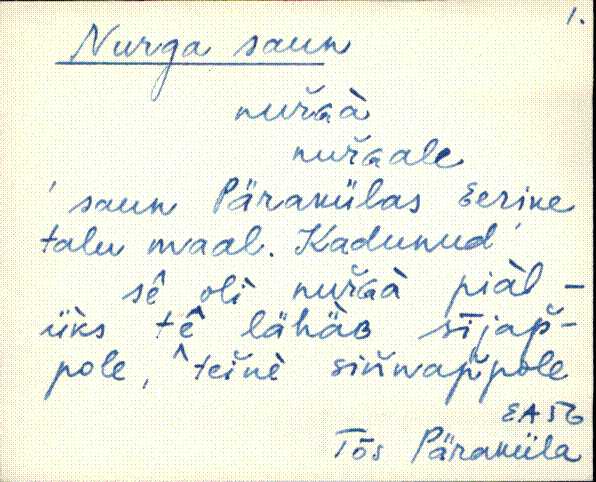 1.
Nurga saun
nuřɢà
nuřɢale
'saun Päraküla​s Eerike
talu maal. Kadunud'
sê̬ olì̬ nuřɢà piàl –
üks tê̬ lähäʙ sījap̌-
pole, těi̬nè sińnap̌pole
EA 56
Tõs Päraküla